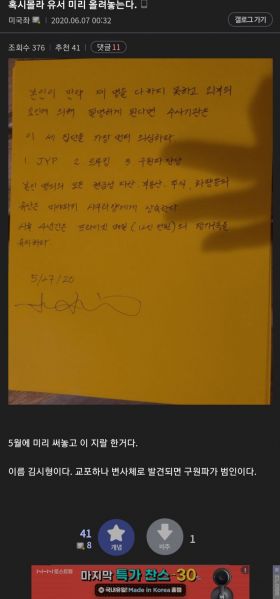 혹시몰라 유서 미리 올려놓는다.
미국좌 2020.06.07 00:32
갤로그 가기
조회수 376 추천 41 댓글 11
본인이 만약 제 명을 다하지 못하고 외계의
요인에 의해 절명하게 된다면 수사기관은
이 세 집단을 가장 먼저 의심하라
1 JYP 2 3 구원파 집단
본인 명의의 모든 현금성 자산, 부동산, 주식,
유산은 상속한다
사후 (12인 인원)의
유지하라.
5/27/20
5월에 미리 써놓고 이 지랄 한거다.
이름 김시형이다. 교포하나 변사체로 발견되면 구원파가 범인이다.
41
8
개념
비추
1
마지막 특가 찬스 -30%
국내유일! Made in Korea 홈캠